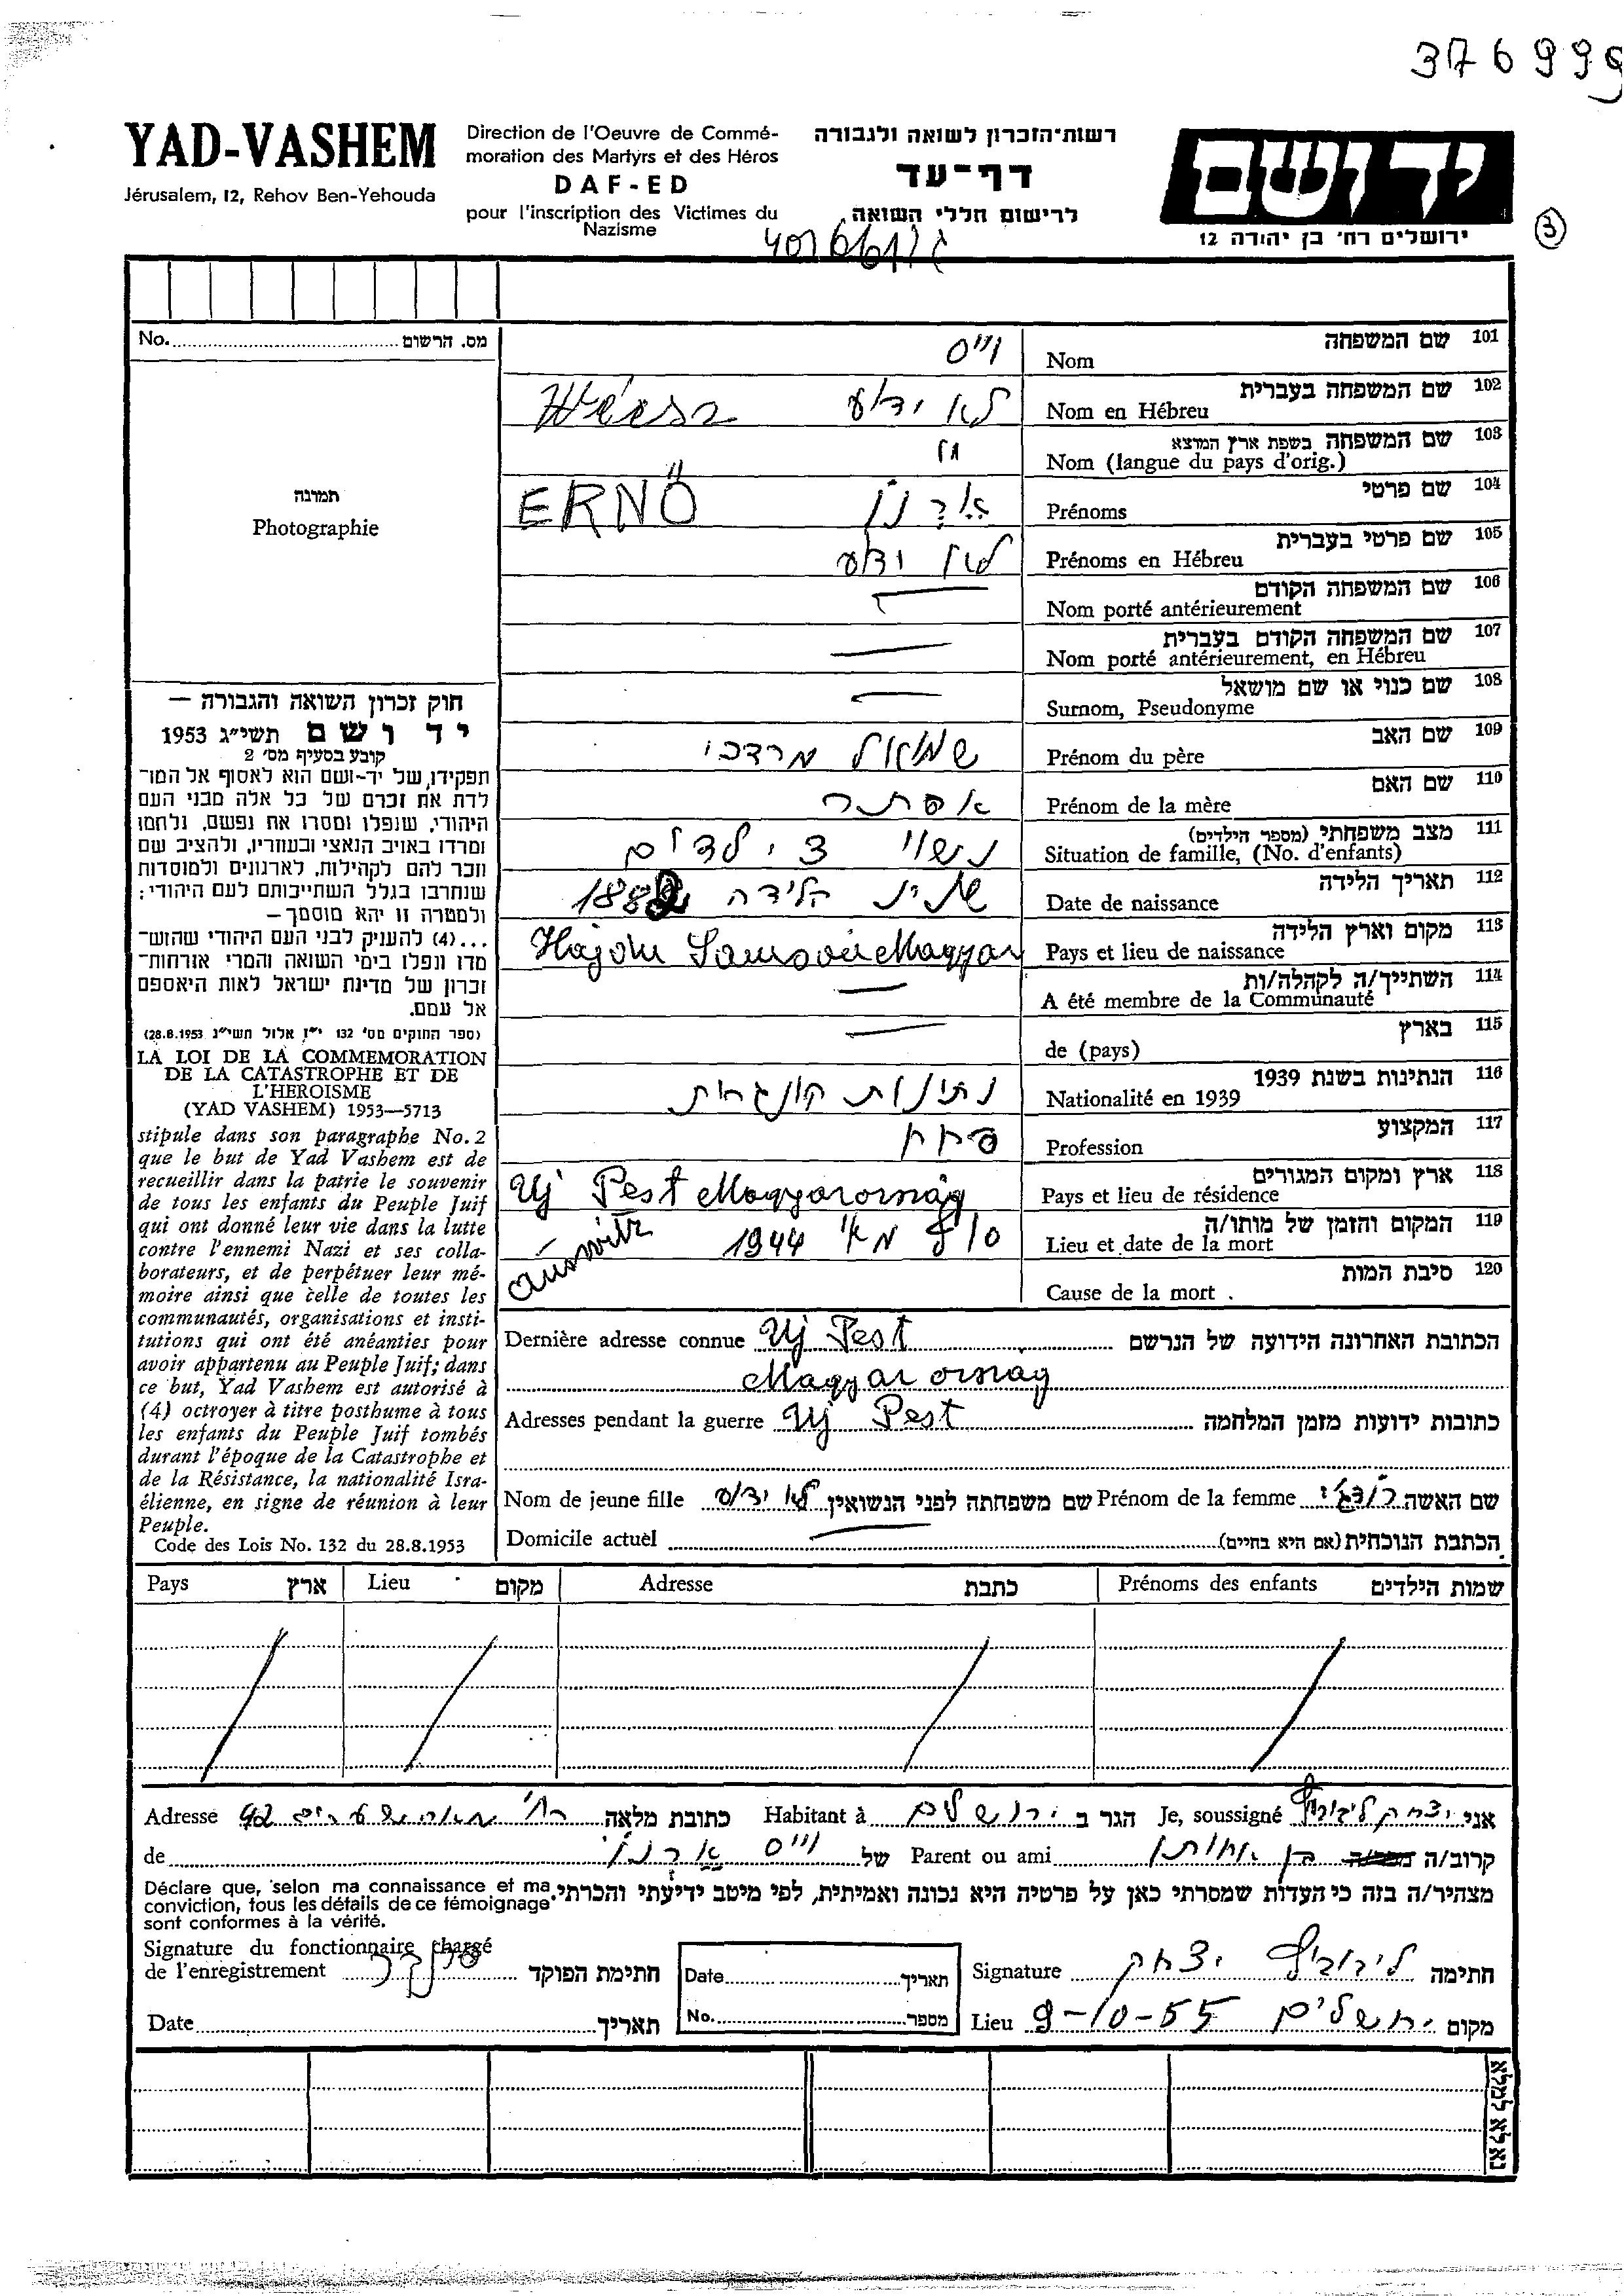 376999
YAD-VASHEM
Jérusalem, 12, Rehov Ben-Yehouda
Direction de l'Oeuvre de Commé-
moration des Martyrs et des Héros
DAF-ED
pour l'inscription des Victimes du
Nazisme
רשות-הזכרון לשואה ולגבורה
דף-עד
לרישום חללי השואה
יד ושם
ירושלים רח' בן יהודה 12
3
No. מס. הרשום
תמונה
Photographie
101 שם המשפחה Nom וייס
102 שם המשפחה בעברית Nom en Hébreu לא ידוע Weisz
103 שם המשפחה בשפת ארץ המוצא Nom (langue du pays d'orig.)
104 שם פרטי Prénoms ארנו ERNÖ
105 שם פרטי בעברית Prénoms en Hébreu לא ידוע
106 שם המשפחה הקודם Nom porté antérieurement
107 שם המשפחה הקודם בעברית Nom porté antérieurement, en Hébreu
108 שם כנוי או שם מושאל Surnom, Pseudonyme
109 שם האב Prénom du père שמואל מרדכי
110 שם האם Prénom de la mère אסתר
111 מצב משפחתי (מספר הילדים) Situation de famille, (No. d'enfants) נשוי 3 ילדים
112 תאריך הלידה Date de naissance הלידה
113 מקום וארץ הלידה Pays et lieu de naissance Magyar
114 השתייך/ה לקהלה/ות A été membre de la Communauté
115 בארץ de (pays)
116 הנתינות בשנת 1939 Nationalité en 1939 נתינות הונגרית
117 המקצוע Profession
118 ארץ ומקום המגורים Pays et lieu de résidence Uj Pest Magyarorszag
119 המקום והזמן של מותו/ה Lieu et date de la mort סוף מאי 1944
120 סיבת המות Cause de la mort
חוק זכרון השואה והגבורה —
יד ושם תשי"ג 1953
קובע בסעיף מס' 2
תפקידו של יד-ושם הוא לאסוף אל המו-
לדת את זכרם של כל אלה מבני העם
היהודי, שנפלו ומסרו את נפשם, נלחמו
ומרדו באויב הנאצי ובעוזריו, ולהציב שם
וזכר להם לקהילות, לארגונים ולמוסדות
שנחרבו בגלל השתייכותם לעם היהודי:
ולמטרה זו יהא מוסמך—
...(4) להעניק לבני העם היהודי שהוש-
מדו ונפלו בימי השואה והמרי אזרחות-
זכרון של מדינת ישראל לאות היאספם
אל עמם.
(ספר החוקים מס' 132 י"ז אלול תשי"ג 28.8.1953)
LA LOI DE LA COMMEMORATION
DE LA CATASTROPHE ET DE
L'HEROISME
(YAD VASHEM) 1953—5713
stipule dans son paragraphe No. 2
que le but de Yad Vashem est de
recueillir dans la patrie le souvenir
de tous les enfants du Peuple Juif
qui ont donné leur vie dans la lutte
contre l'ennemi Nazi et ses colla-
borateurs, et de perpétuer leur mé-
moire ainsi que celle de toutes les
communautés, organisations et insti-
tutions qui ont été anéanties pour
avoir appartenu au Peuple Juif; dans
ce but, Yad Vashem est autorisé à
(4) octroyer à titre posthume à tous
les enfants du Peuple Juif tombés
durant l'époque de la Catastrophe et
de la Résistance, la nationalité Isra-
élienne, en signe de réunion à leur
Peuple.
Code des Lois No. 132 du 28.8.1953
Dernière adresse connue Uj Pest הכתובת האחרונה הידועה של הנרשם
Magyarorszag
Adresses pendant la guerre Uj Pest כתובות ידועות מזמן המלחמה
שם האשה Prénom de la femme שם משפחתה לפני הנשואין לא ידוע Nom de jeune fille
הכתבת הנוכחית (אם היא בחיים) Domicile actuel
Pays ארץ Lieu מקום Adresse כתבת Prénoms des enfants שמות הילדים
אני יצחק Je, soussigné הגר ב ירושלים Habitant à כתובת מלאה רח' Adresse
קרוב/ה בן אחותו Parent ou ami של וייס ארנו de
מצהיר/ה בזה כי העדות שמסרתי כאן על פרטיה היא נכונה ואמיתית, לפי מיטב ידיעתי והכרתי.
Déclare que, selon ma connaissance et ma
conviction, tous les détails de ce témoignage
sont conformes à la vérité.
Signature du fonctionnaire chargé
de l'enregistrement חתימת הפוקד
Date תאריך
Date תאריך
No. מספר
Signature יצחק חתימה
Lieu 9-10-55 ירושלים מקום
נא לא למלא